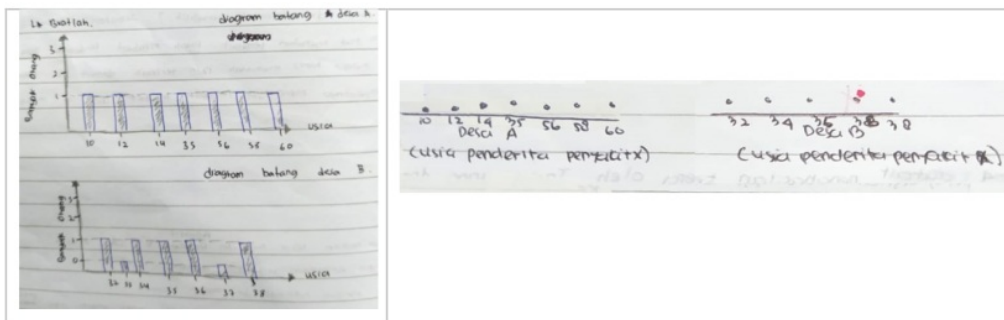 diagram batang desa A.
3
2
1
10 12 14 35 56 58 60
usia
diagram batang desa B.
3
2
1
0
32 33 34 35 36 37 38
usia
10 12 14 35 56 58 60
Desa A
(usia penderita penyakit x)
32 34 36 38
Desa B
(usia penderita penyakit x)